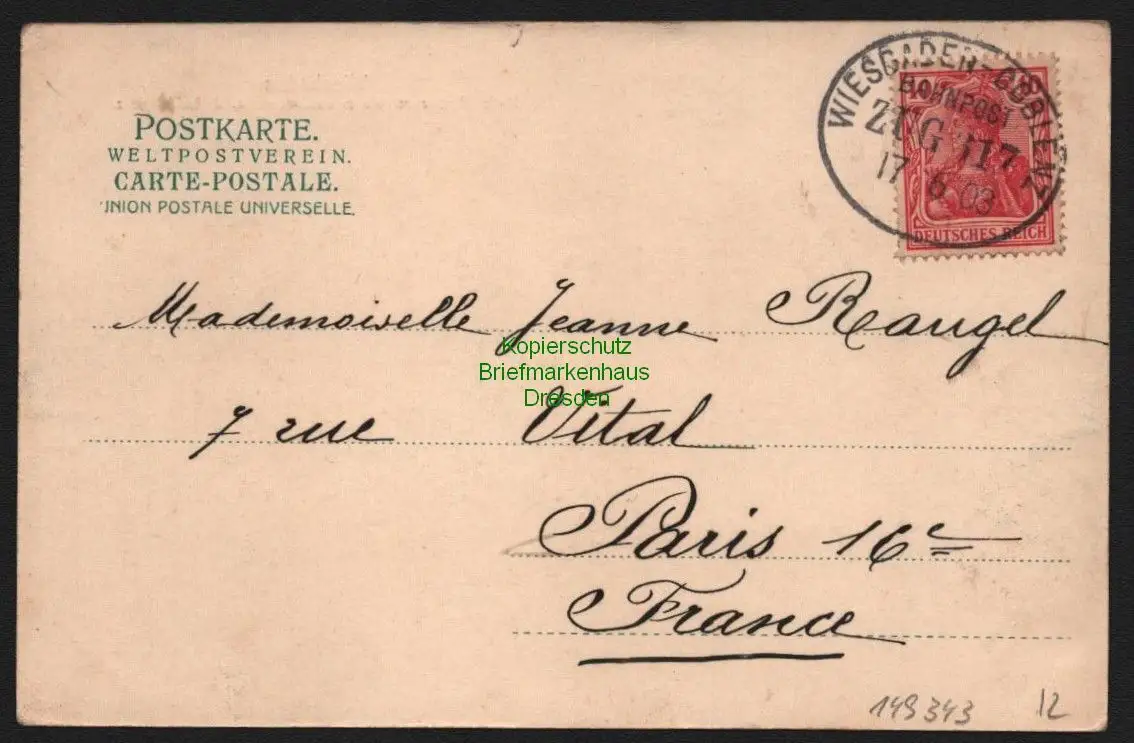 POSTKARTE.
WELTPOSTVEREIN.
CARTE-POSTALE.
UNION POSTALE UNIVERSELLE.
WIESBADEN-COBLENZ
BAHNPOST
ZUG 117
17 6 03
10
DEUTSCHES REICH
Mademoiselle Jeanne Raugel
Kopierschutz
Briefmarkenhaus
Dresden
7 rue Vital
Paris 16e
France
149343 12